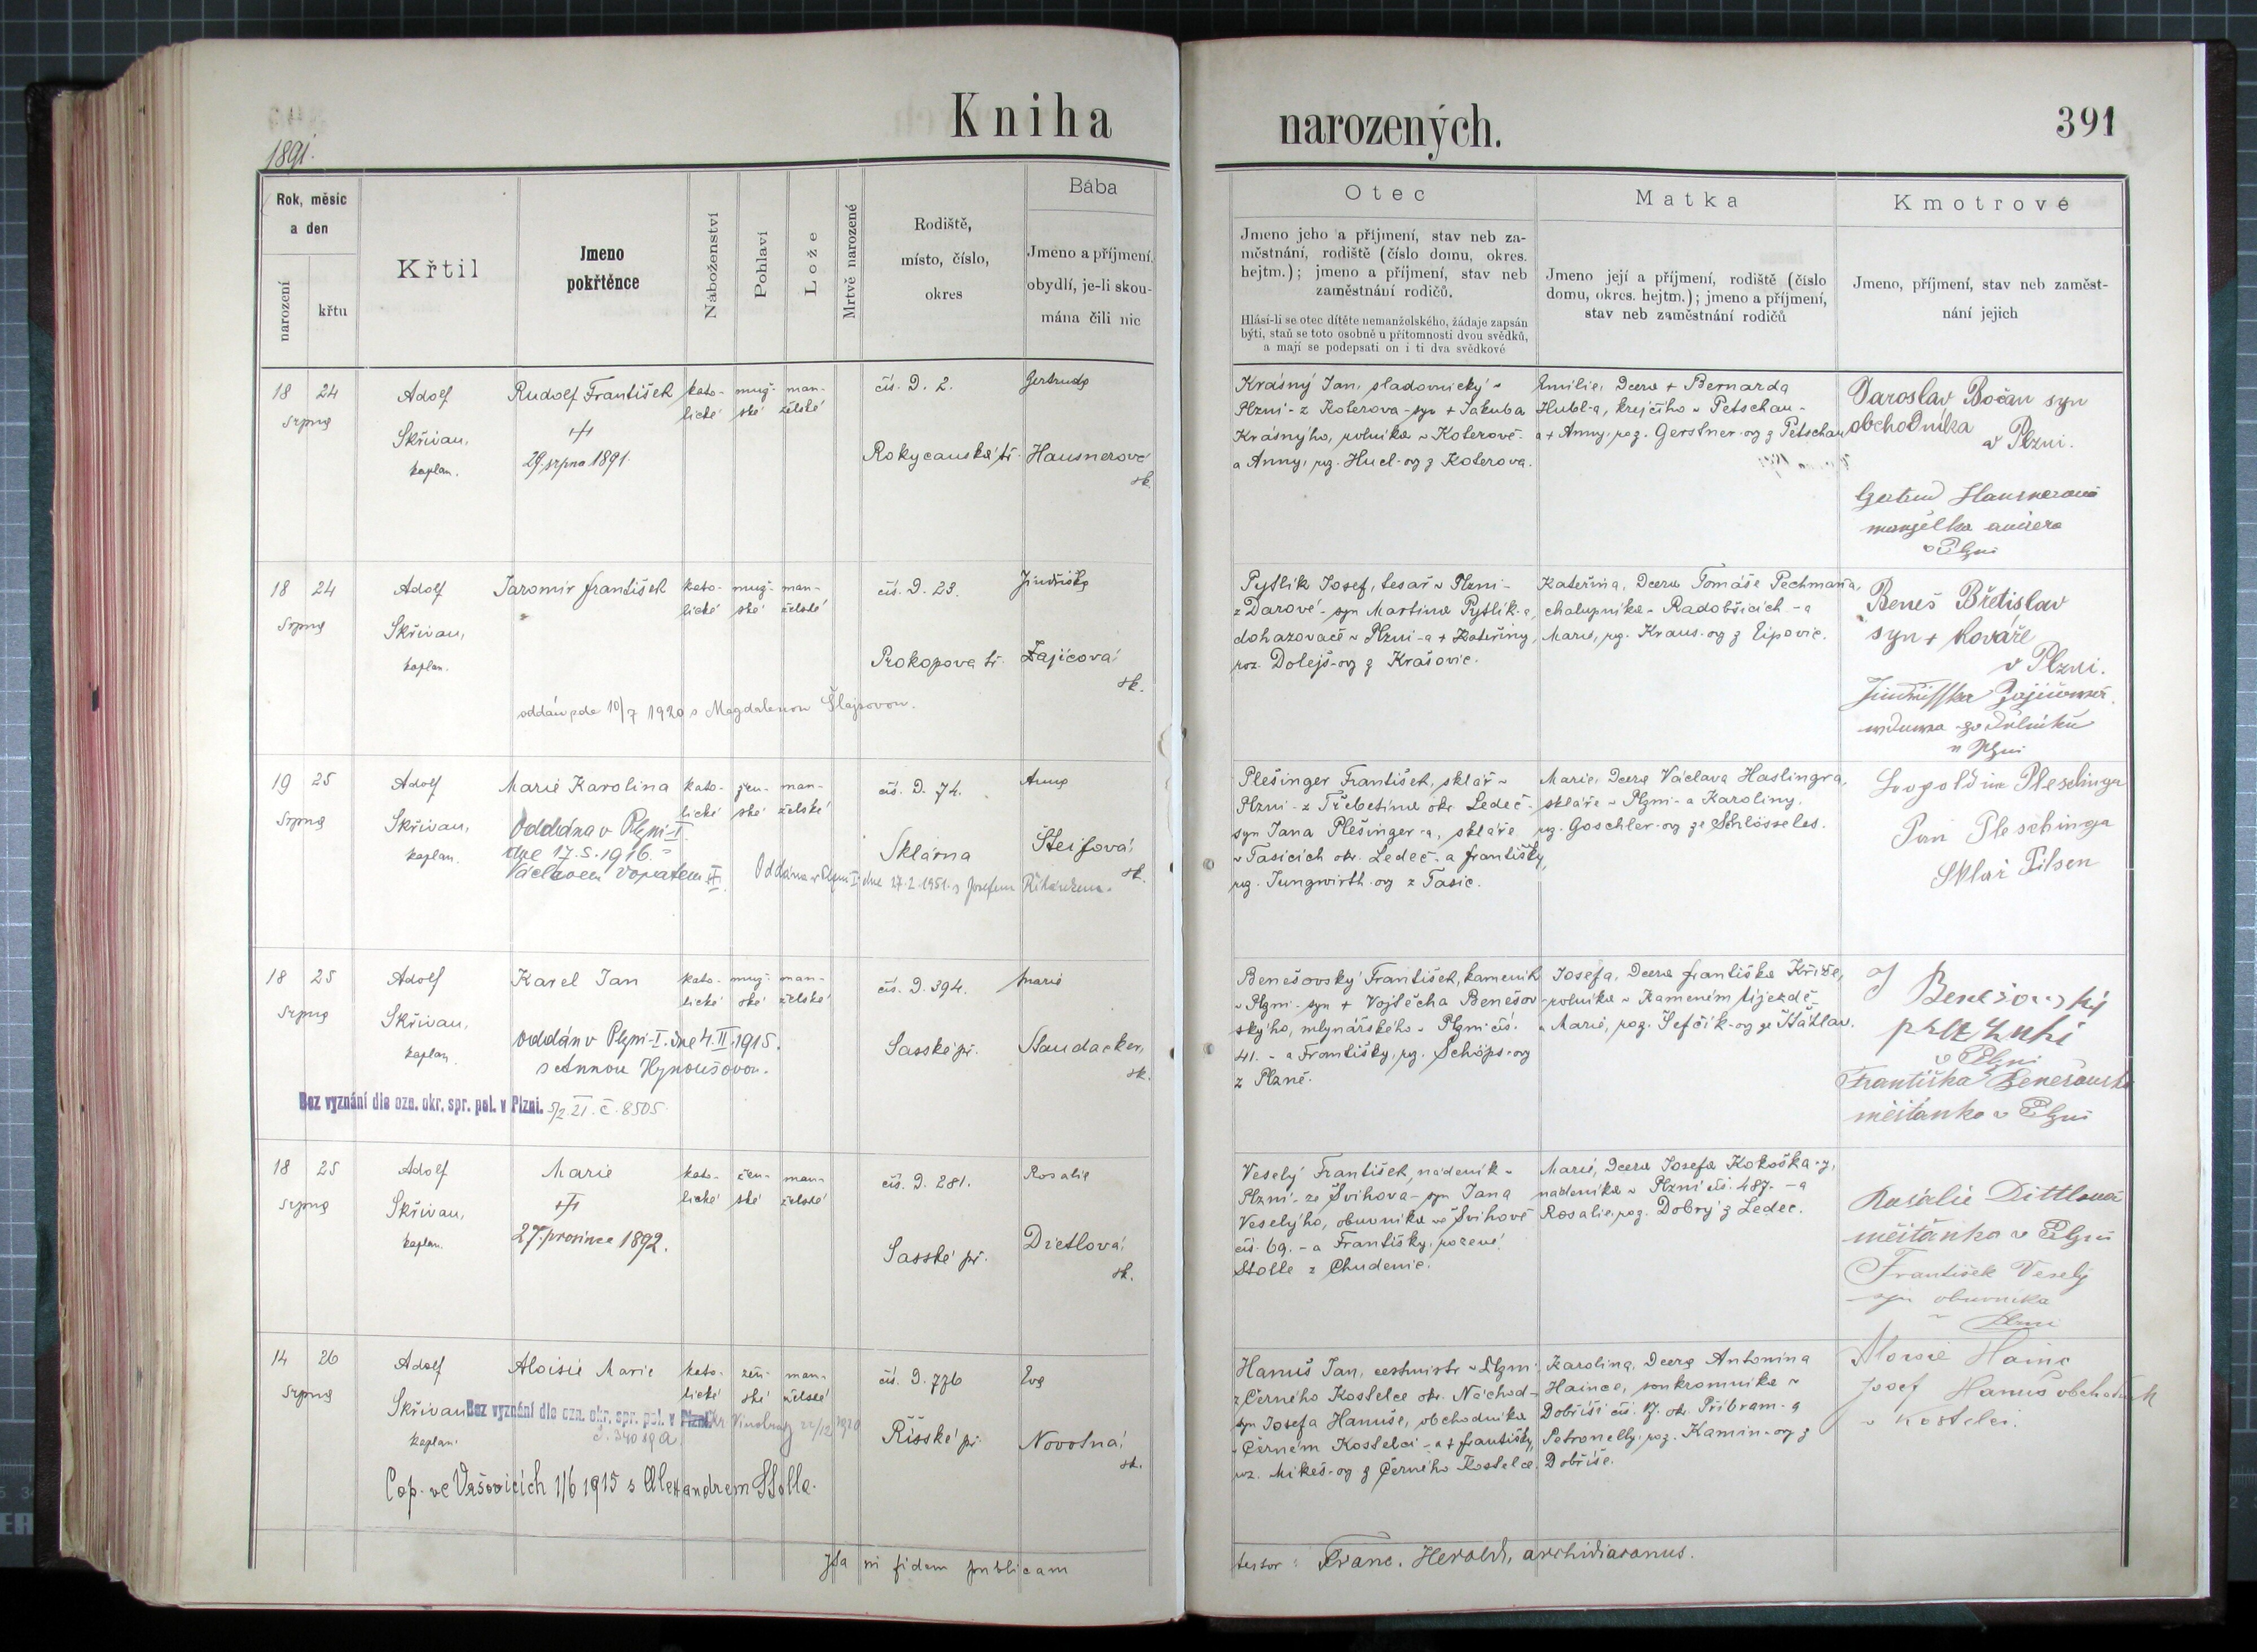 Kniha narozených.
391
1891.
Rok, měsíc
a den
narození
křtu
Křtil
Jmeno
pokřtěnce
Náboženství
Pohlaví
Lože
Mrtvě narozené
Rodiště,
místo, číslo,
okres
Bába
Jmeno a příjmení,
obydlí, je-li skou-
mána čili nic
Otec
Jmeno jeho a příjmení, stav neb za-
městnání, rodiště (číslo domu, okres.
hejtm.); jmeno a příjmení, stav neb
zaměstnání rodičů.
Hlásí-li se otec dítěte nemanželského, žádaje zapsán
býti, staň se toto osobně u přítomnosti dvou svědků,
a mají se podepsati on i ti dva svědkové
Matka
Jmeno její a příjmení, rodiště (číslo
domu, okres. hejtm.); jmeno a příjmení,
stav neb zaměstnání rodičů
Kmotrové
Jmeno, příjmení, stav neb zaměst-
nání jejich
18 24
srpna
Adolf
Skřivan,
kaplan.
Rudolf František
29. srpna 1891.
kato-
lické
muž-
ské
man-
želské
čís. D. 2.
Rokycanská tř.
Gertruda
Hausnerová
zk.
Krásný Jan, sladovnický v
Plzni - z Koterova - syn + Jakuba
Krásnýho, rolníka v Koterově -
a Anny, roz. Hucl-ov z Koterova.
Emilie, dcera + Bernarda
Hubl-a, krejčího v Petschau -
a + Anny, roz. Gerstner-ov z Petschau
Jaroslav Bočan syn
obchodníka
v Plzni.
Gertrud Hausnerová
manželka
v Plzni
18 24
srpna
Adolf
Skřivan,
kaplan.
Jaromír František
kato-
lické
muž-
ské
man-
želské
čís. D. 23.
Prokopova tř.
Jindřiška
Zajícová
zk.
oddán zde 10/7 1920 s Magdalenou Šlajsovou.
Pytlík Josef, tesař v Plzni -
z Darové - syn Martina Pytlík-a,
dohazovače v Plzni - a + Kateřiny,
roz. Dolejš-ov z Krašovic.
Kateřina, dcera Tomáše Pechmana,
chalupníka v Radobčicích - a
Marie, roz. Kraus-ov z Lipovic.
Beneš Břetislav
syn + kováře
v Plzni.
Jindřisska Zajicowa
wdowa po
w Plzni
19 25
srpna
Adolf
Skřivan,
kaplan.
Marie Karolina
Oddána v Plzni-I.
dne 17.5.1916.
Václavem Vopatem
kato-
lické
žen-
ské
man-
želské
čís. D. 74.
Sklárna
Anna
Šteifová
zk.
Oddána v Plzni I dne 27.2.1951 s Josefem
Plešinger František, sklář v
Plzni - z Třebetína okr. Ledeč -
syn Jana Plešinger-a, skláře
v Tasicích okr. Ledeč - a Františky,
roz. Jungwirth-ov z Tasic.
Marie, dcera Václava Haslingra,
skláře v Plzni - a Karoliny,
roz. Goschler-ov ze Schlösseles.
Leopoldina Pleschinger
Pleschinga
Sklař Pilsen
18 25
srpna
Adolf
Skřivan,
kaplan.
Karel Jan
kato-
lické
muž-
ské
man-
želské
čís. D. 394.
Saské př.
Marie
Staudacker,
zk.
Oddán v Plzni-I. dne 4.II.1915.
s Annou Hynoušovou.
Bez vyznání dle ozn. okr. spr. pol. v Plzni. 5/2 21. č. 8505.
Benešovský František, kameník
v Plzni - syn + Vojtěcha Benešov-
ského, mlynářského v Plzni čís.
41. - a Františky, roz. Schöps-ov
z Plzně.
Josefa, dcera Františka Kříže,
rolníka v Kameném Újezdě -
a Marie, roz. Šefčík-ov ze Šťáhlav.
J Benešovský
v Plzni
Františka Benešovská
měšťanka v Plzni
18 25
srpna
Adolf
Skřivan,
kaplan.
Marie
27. prosince 1892.
kato-
lické
žen-
ské
man-
želské
čís. D. 281.
Saské př.
Rosalie
Dietlová
zk.
Veselý František, nádeník v
Plzni - ze Švihova - syn Jana
Veselýho, obuvníka ve Švihově
čís. 69. - a Františky, rozené
Stolle z Chudenic.
Marie, dcera Josefa Kokoška-y,
nádeníka v Plzni čís. 487. - a
Rosalie, roz. Dobrý z Ledec.
Rosálie Dittlová
měšťanka v Plzni
František Veselý
syn obuvníka
v Plzni
14 26
srpna
Adolf
Skřivan
kaplan.
Aloisie Marie
kato-
lické
žen-
ské
man-
želské
čís. D. 776
Říšské př.
Eva
Novotná
zk.
Bez vyznání dle ozn. okr. spr. pol. v Plzni. Vinohrady 22/12 1920
Cop. ve Vršovicích 1/6 1915 s Alexandrem Stolle.
Hanuš Jan, cestmistr v Plzni
z Černého Kostelce okr. Náchod -
syn Josefa Hanuše, obchodníka
v Černém Kostelci - a + Františky,
roz. Mikeš-ov z Černého Kostelce.
Karolina, dcera Antonína
Haince, soukromníka v
Dobříši čís. 17. okr. Příbram - a
Petronelly, roz. Kamin-ov z
Dobříše.
Aloisie Hainc
Josef Hanuš obchodník
v Kostelci.
Ita in fidem publicam
testor: Franc. Herold, archidiaconus.